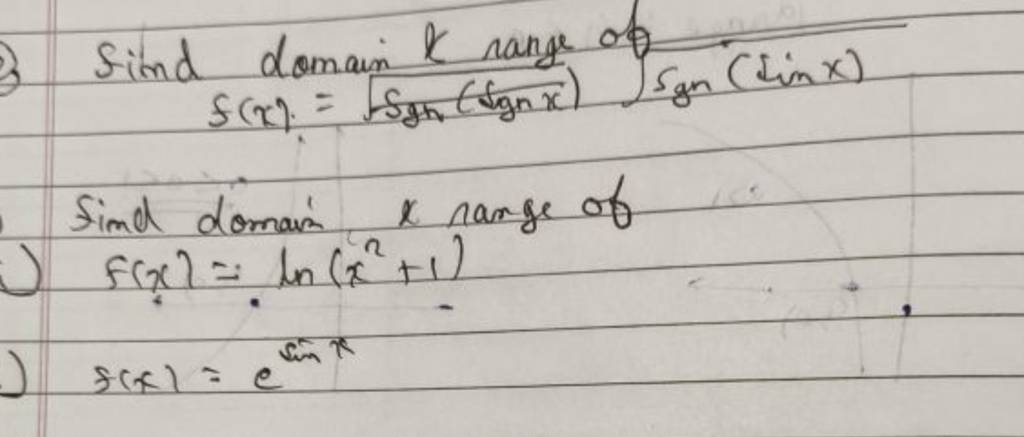 Find domain & range of
f(x) = √sgn(sgn x) √sgn(sin x)
Find domain & range of
f(x) = ln(x²+1)
f(x) = e^sin x